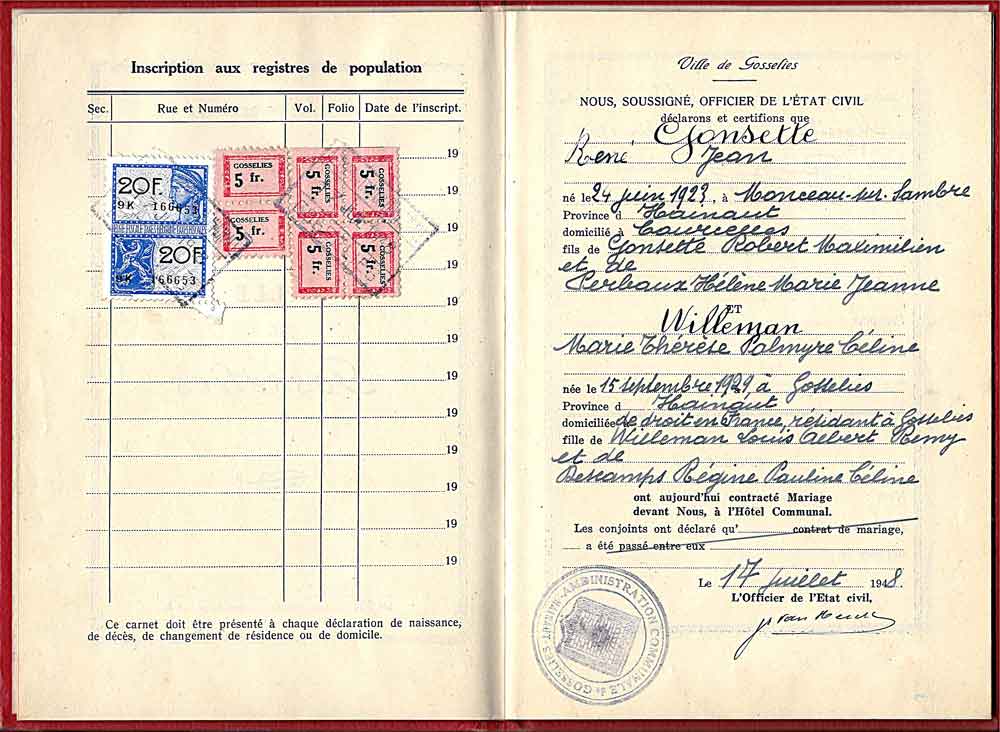 Inscription aux registres de population
Sec. Rue et Numéro Vol. Folio Date de l'inscript.
19
19
19
19
19
19
19
19
19
19
19
20F.
9K 166653
20F.
9K 166653
GOSSELIES
5 fr.
GOSSELIES
5 fr.
GOSSELIES
5 fr.
GOSSELIES
5 fr.
GOSSELIES
5 fr.
GOSSELIES
5 fr.
Ce carnet doit être présenté à chaque déclaration de naissance,
de décès, de changement de résidence ou de domicile.
Ville de Gosselies
NOUS, SOUSSIGNÉ, OFFICIER DE L'ÉTAT CIVIL
déclarons et certifions que
Gonsette
René Jean
né le 24 juin 1923, à Monceau-sur-Sambre
Province d Hainaut
domicilié à Courcelles
fils de Gonsette Robert Maximilien
et de
Perbaux Hélène Marie Jeanne
ET
Willeman
Marie Thérèse Palmyre Céline
née le 15 septembre 1929 à Gosselies
Province d Hainaut
domiciliée de droit en France, résidant à Gosselies
fille de Willeman Louis Albert Remy
et de
Descamps Régine Pauline Céline
ont aujourd'hui contracté Mariage
devant Nous, à l'Hôtel Communal.
Les conjoints ont déclaré qu' contrat de mariage,
a été passé entre eux
Le 17 juillet 1948.
L'Officier de l'Etat civil,
ADMINISTRATION COMMUNALE de GOSSELIES-HAINAUT